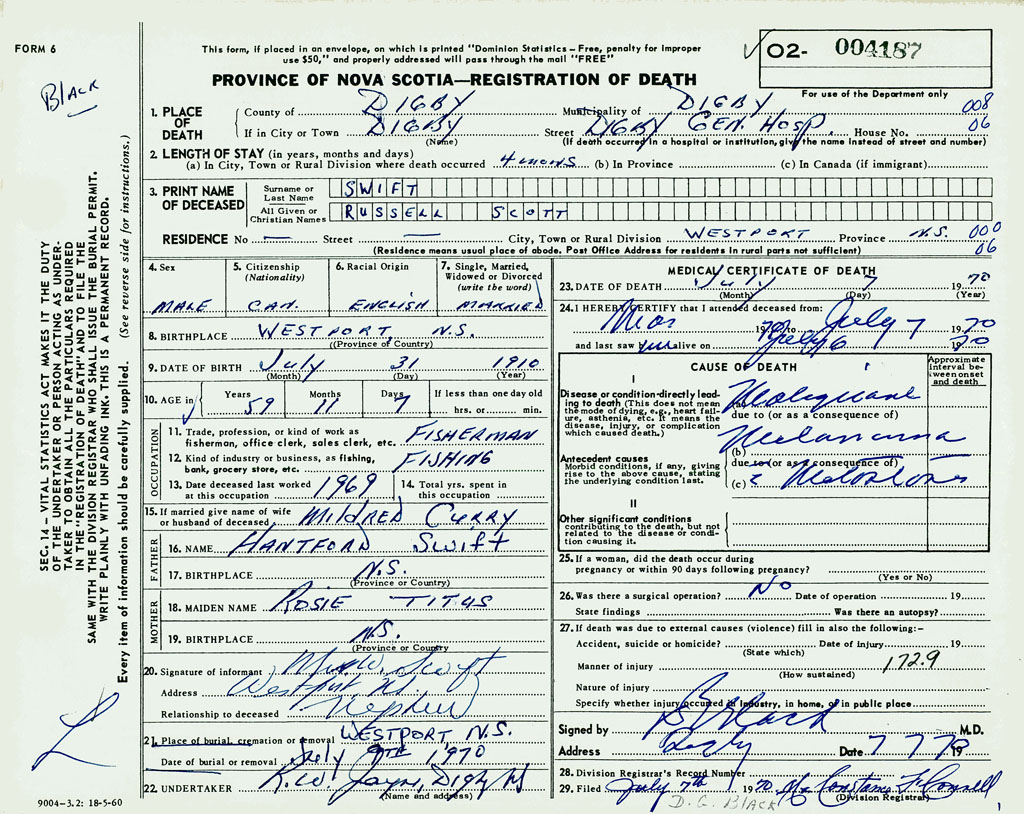 FORM 6
This form, if placed in an envelope, on which is printed "Dominion Statistics – Free, penalty for improper
use $50," and properly addressed will pass through the mail "FREE"
PROVINCE OF NOVA SCOTIA—REGISTRATION OF DEATH
O2- 004187
For use of the Department only
BLACK
1. PLACE OF DEATH
County of DIGBY Municipality of DIGBY 008
If in City or Town DIGBY Street DIGBY GEN. HOSP. House No. 06
(Name) (If death occurred in a hospital or institution, give the name instead of street and number)
2. LENGTH OF STAY (in years, months and days)
(a) In City, Town or Rural Division where death occurred 4 mons (b) In Province (c) In Canada (if immigrant)
3. PRINT NAME OF DECEASED
Surname or Last Name SWIFT
All Given or Christian Names RUSSELL SCOTT
RESIDENCE No — Street — City, Town or Rural Division WESTPORT Province N.S. 000
06
(Residence means usual place of abode. Post Office Address for residents in rural parts not sufficient)
4. Sex MALE
5. Citizenship (Nationality) CAN.
6. Racial Origin ENGLISH
7. Single, Married, Widowed or Divorced (write the word) MARRIED
8. BIRTHPLACE WESTPORT, N.S.
(Province or Country)
9. DATE OF BIRTH July 31 1910
(Month) (Day) (Year)
10. AGE in Years 59 Months 11 Days 7 If less than one day old hrs. or min.
OCCUPATION
11. Trade, profession, or kind of work as
fisherman, office clerk, sales clerk, etc. FISHERMAN
12. Kind of industry or business, as fishing,
bank, grocery store, etc. FISHING
13. Date deceased last worked at this occupation 1969
14. Total yrs. spent in this occupation
15. If married give name of wife
or husband of deceased MILDRED CURRY
FATHER
16. NAME HANTFORD SWIFT
17. BIRTHPLACE N.S.
(Province or Country)
MOTHER
18. MAIDEN NAME ROSIE TITUS
19. BIRTHPLACE N.S.
(Province or Country)
20. Signature of informant Swift
Address Westport N.S.
Relationship to deceased Nephew
21. Place of burial, cremation or removal WESTPORT N.S.
Date of burial or removal July 9TH 1970
22. UNDERTAKER K.W. Jayne, Digby
(Name and address)
MEDICAL CERTIFICATE OF DEATH
23. DATE OF DEATH July 7 1970
(Month) (Day) (Year)
24. I HEREBY CERTIFY that I attended deceased from:
Mar 1970 to July 7 1970
and last saw him alive on July 6 1970
CAUSE OF DEATH
Approximate interval between onset and death
I
Disease or condition directly leading
to death (This does not mean
the mode of dying, e.g., heart failure,
asthenia, etc. It means the
disease, injury, or complication
which caused death.)
Malignant
due to (or as a consequence of)
Melanoma
(b)
Antecedent causes
Morbid conditions, if any, giving
rise to the above cause, stating
the underlying condition last.
due to (or as a consequence of)
(c)
II
Other significant conditions
contributing to the death, but not
related to the disease or condition
causing it.
25. If a woman, did the death occur during
pregnancy or within 90 days following pregnancy?
(Yes or No)
26. Was there a surgical operation? No Date of operation 19
State findings Was there an autopsy?
27. If death was due to external causes (violence) fill in also the following:–
Accident, suicide or homicide? Date of injury 19
(State which)
Manner of injury 172.9
(How sustained)
Nature of injury
Specify whether injury occurred in industry, in home, or in public place
Signed by Black M.D.
Address Digby Date 7 7 1970
28. Division Registrar's Record Number
29. Filed July 7th 1970 Constance
(Division Registrar)
D. G. BLACK
SEC. 14 – VITAL STATISTICS ACT MAKES IT THE DUTY
OF THE UNDERTAKER OR PERSON ACTING AS UNDERTAKER
TO OBTAIN ALL THE PARTICULARS REQUIRED
IN THE "REGISTRATION OF DEATH" AND TO FILE THE
SAME WITH THE DIVISION REGISTRAR WHO SHALL ISSUE THE BURIAL PERMIT.
WRITE PLAINLY WITH UNFADING INK. THIS IS A PERMANENT RECORD.
Every item of information should be carefully supplied. (See reverse side for instructions.)
9004–3.2: 18-5-60
1